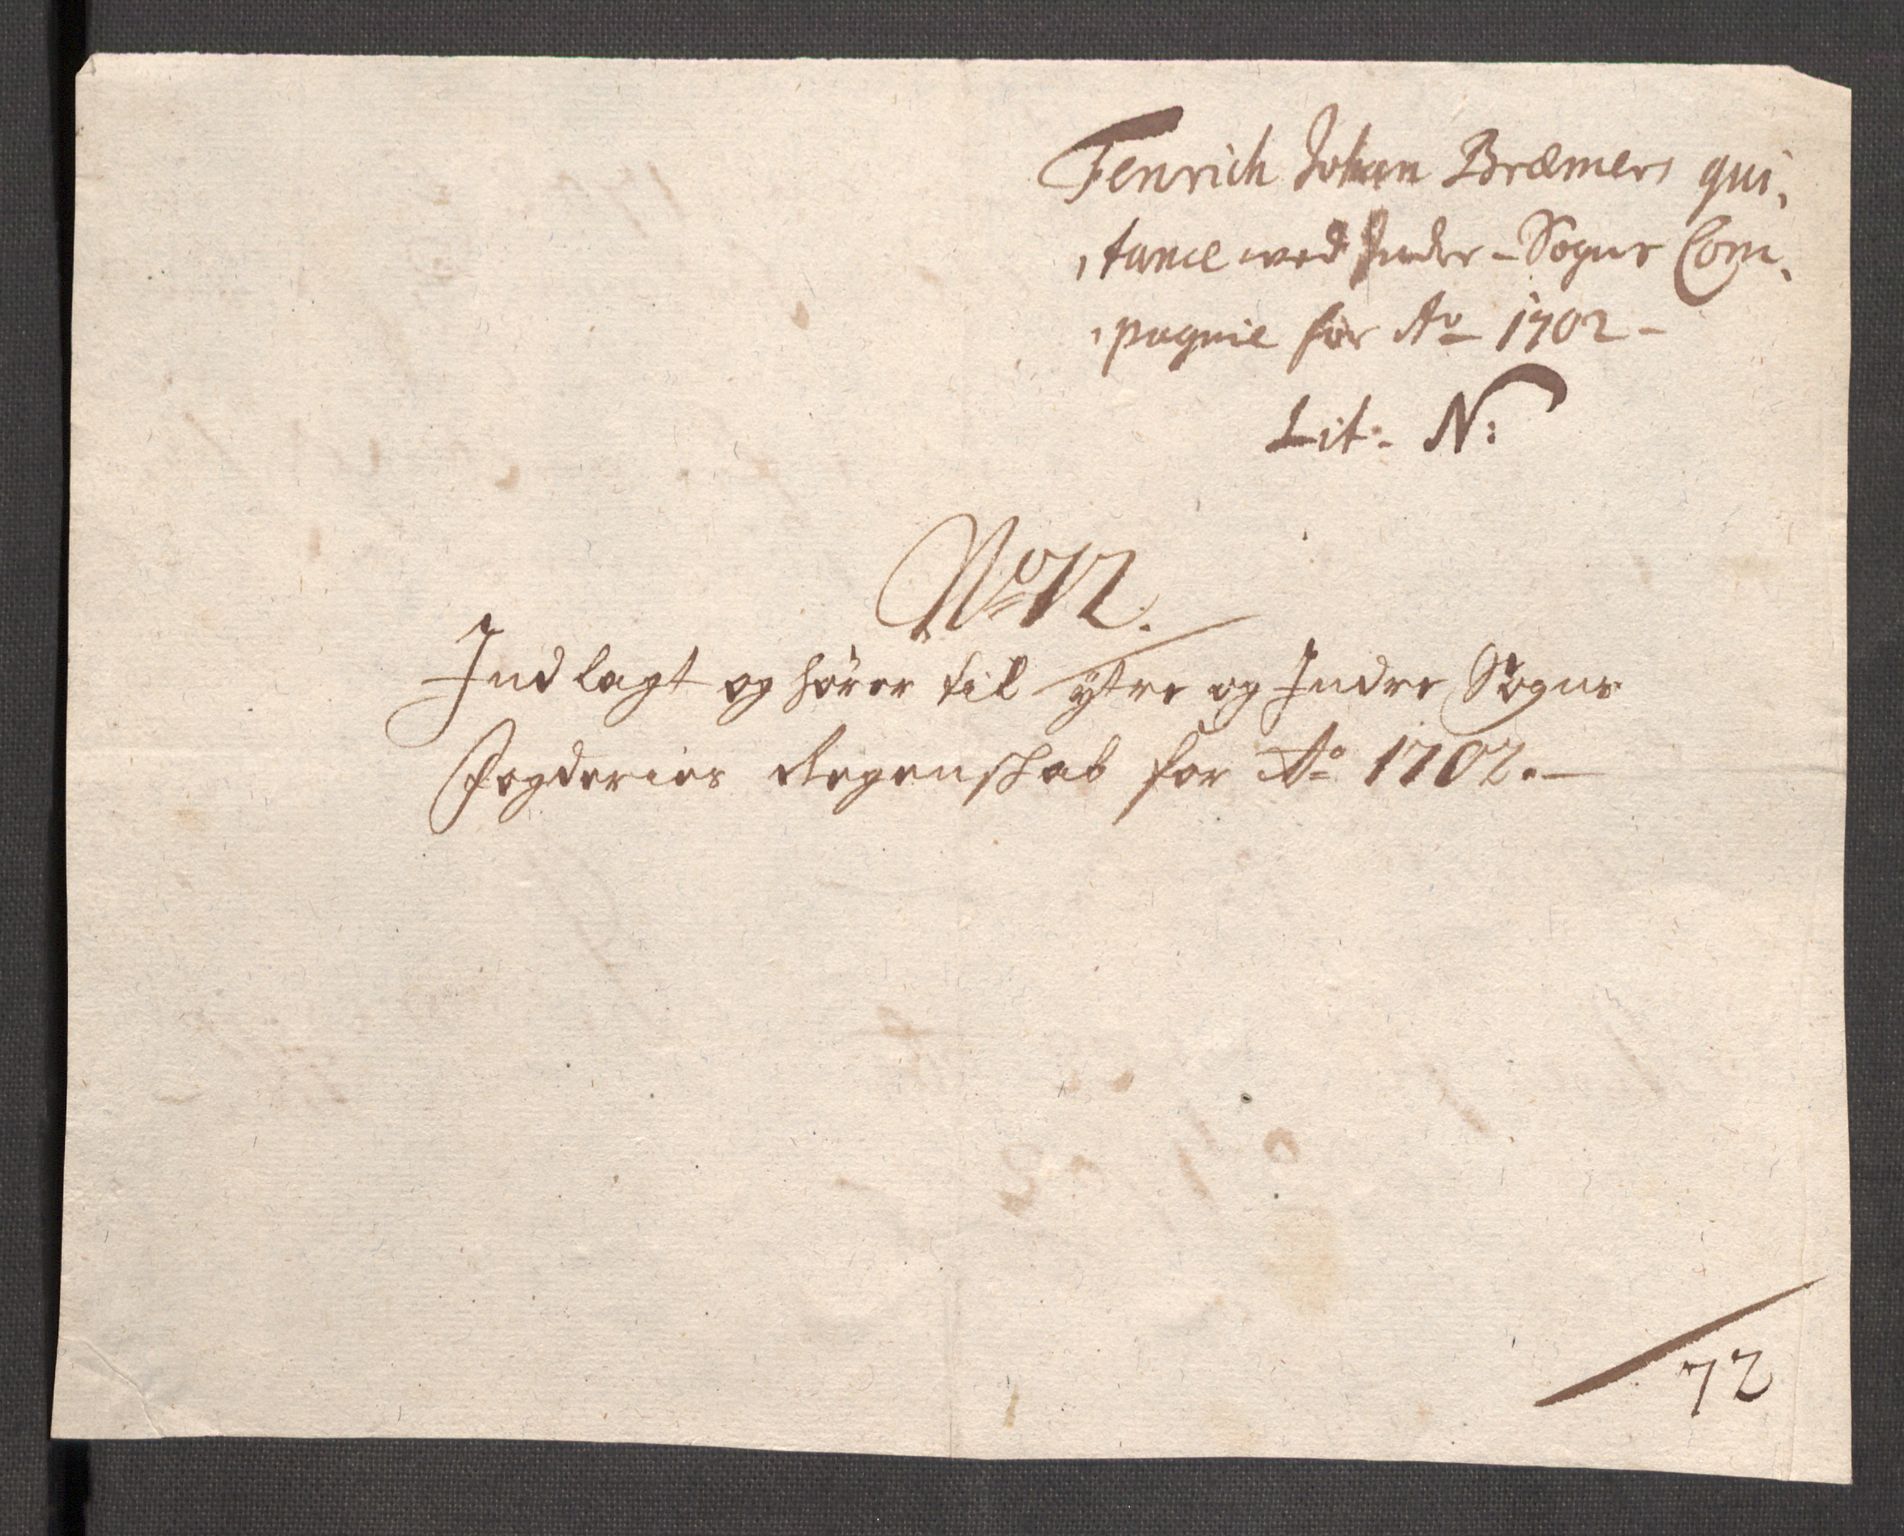 Fenrich Johan Bræmers qui,
,tance wed Inder-Sogns Com,
,pagnie for Ao 1702-
Lit: N:
No 12.
Indlagt og hörer til ytre og Indre Sogns
Fogderies Regenskab for Ao 1702.-
72